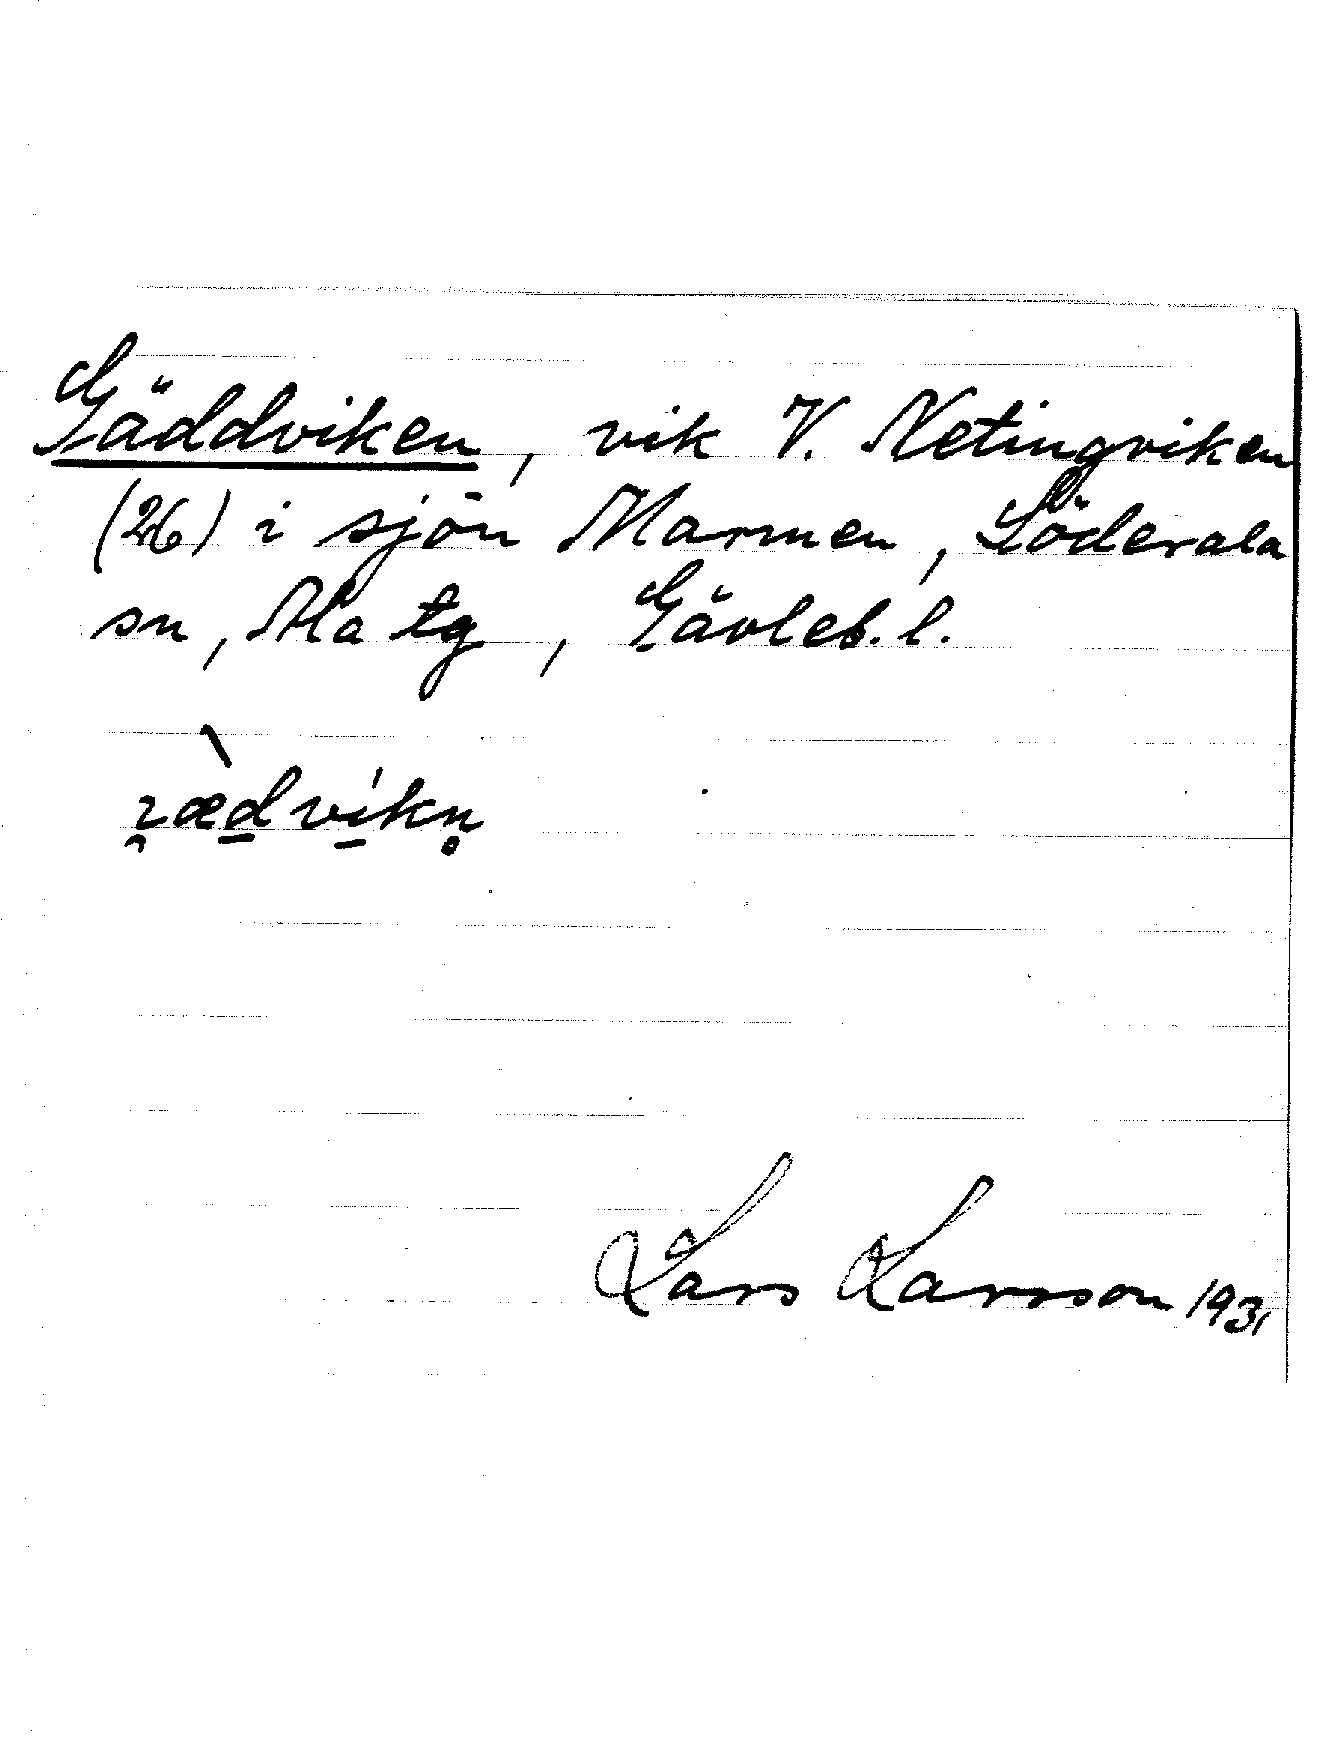 Gäddviken, vik V. Netingviken
(26) i sjön Marmen, Söderala
sn, Ala tg, Gävleb. l.
Lars Larsson 1931